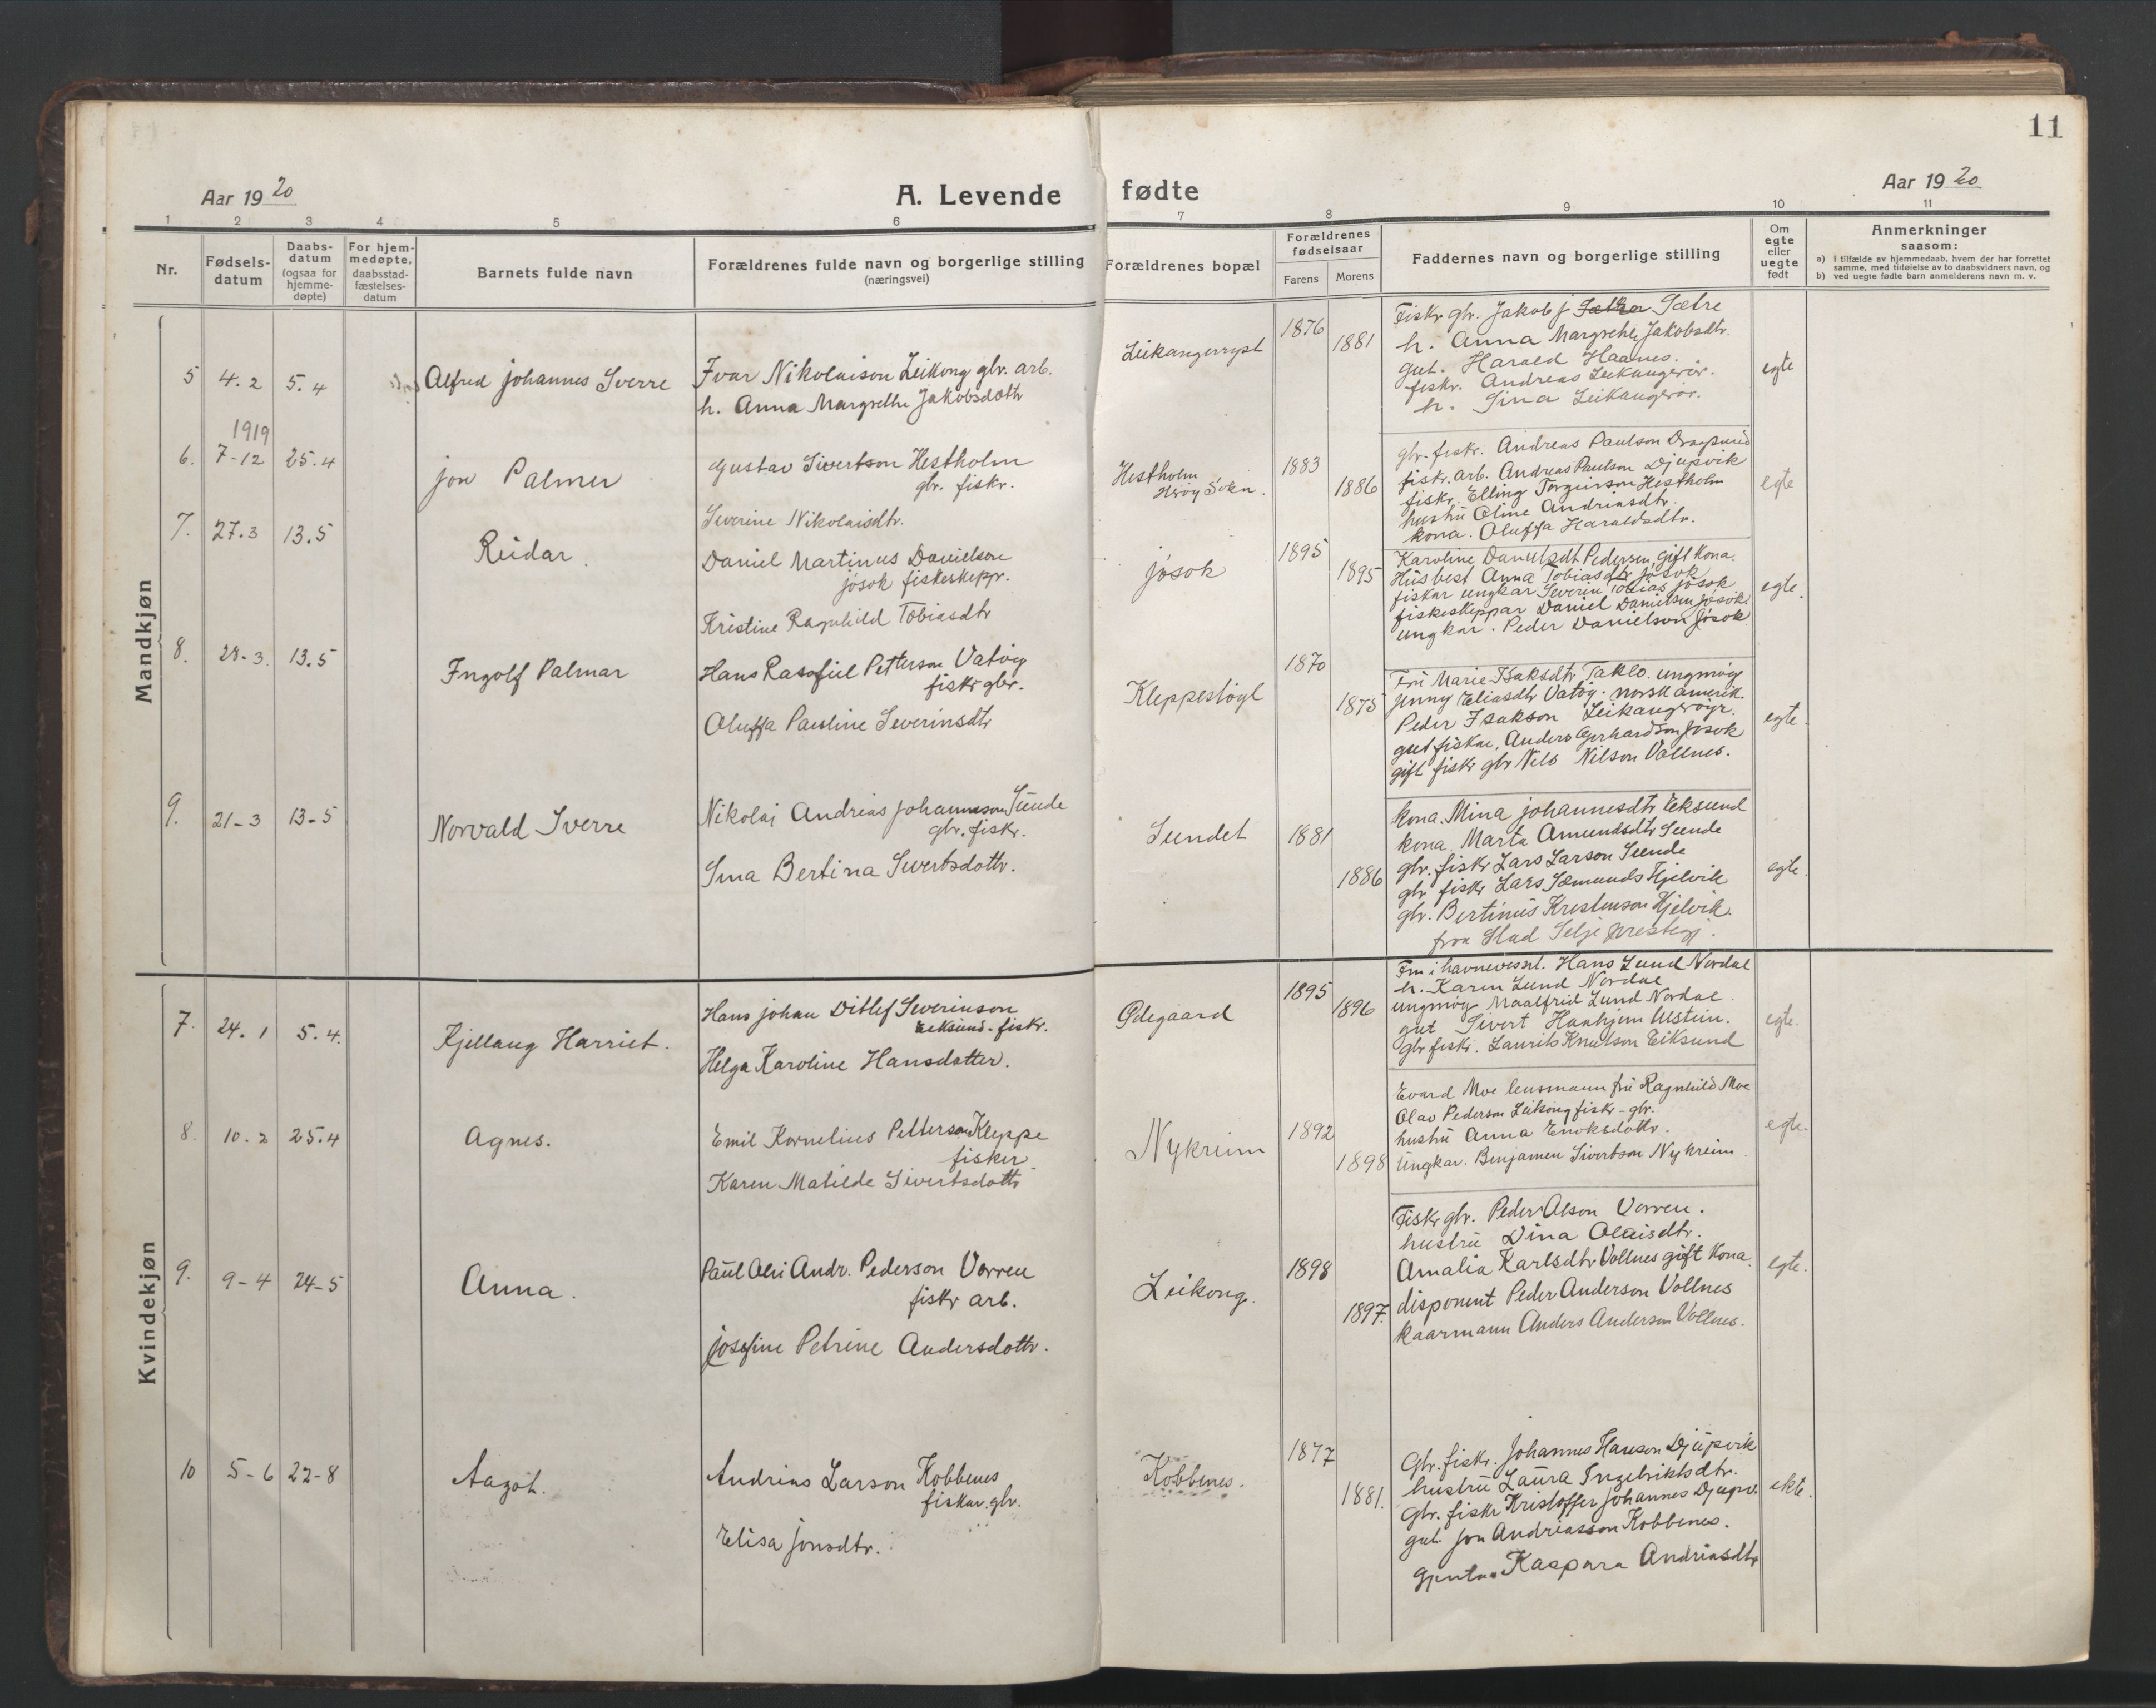 11
Aar 1920
A. Levende fødte
Aar 1920
1 2 3 4 5 6 7 8 9 10 11
Nr.
Fødsels-
datum
Daabs-
datum
(ogsaa for
hjemme-
døpte)
For hjem-
medøpte,
daabsstad-
fæstelses-
datum
Barnets fulde navn
Forældrenes fulde navn og borgerlige stilling
(næringsvei)
Forældrenes bopæl
Forældrenes
fødselsaar
Farens
Morens
Faddernes navn og borgerlige stilling
Om
egte
eller
uegte
født
Anmerkninger
saasom:
a) i tilfælde av hjemmedaab, hvem der har forrettet
samme, med tilføielse av to daabsvidners navn, og
b) ved uegte fødte barn anmelderens navn m. v.
Mandkjøn
5 4.2 5.4
Alfred Johannes Sverre
Ivar Nikolaison Leikong gbr. arb.
h. Anna Margrethe Jakobsdottr
1876
1881
Fiskr gbr. Jakob J Sætre
h. Anna Margrethe Jakobsdtr.
gut. Harald Haanes.
fiskr. Andreas Leikangerør.
h. Sina Leikangerør.
egte
1919
6. 7-12 25.4
Jon Palmer
Gustav Sivertson Hestholm
gbr. fiskr.
Severine Nikolaisdtr.
Hestholm
Herøy Sokn.
1883
1886
gbr. fiskr. Andreas Paulson Dragsund
fiskr. arb. Andreas Paulson Djupvik
fiskr. Elling Torgeirson Hestholm
hustrü Oline Andriasdtr.
kona. Oluffa Haraldsdtr.
egte
7. 27.3 13.5
Reidar.
Daniel Martinus Danielson
Jøsok fiskeskeppr.
Kristine Ragnhild Tobiasdtr
Jøsok
1895
1895
Karoline Danielsdt Pedersen, gift kona.
Hüsbest Anna Tobiasdtr Jøsok
fiskar ungkar Severin Tobias Jøsok
fiskeskeppar Daniel Danielsen Jøsok
ungkar. Peder Danielson Jøsok
egte.
8. 28-3. 13.5
Ingolf Palmar
Hans Rasofiel Petterson Vatøy
fiskr gbr.
Oluffa Pauline Severinsdtr
Kleppestøyl
1870
1875
Frü Marie Isaksdtr Taklo. ungmøy
Jenny Eliasdtr Vatøy. norsk amerik.
Peder Isakson Leikangerøyr.
gut fiskar, Anders Gerhardson Jøsok
gift fiskr gbr Nils Nilson Vallnes.
egte.
9. 21-3 13-5
Norvald Sverre
Nikolai Andreas Johannesson Sünde
gbr. fiskr.
Sina Bertina Sivertsdottr.
Sundet
1881
1886
kona. Mina Johannesdtr Eiksund
kona. Marta Amundsdtr Sunde
gbr. fiskr Lars Larson Sunde
gbr fiskr Lars Sæmunds Hjelvik
gbr. Bertinüs Kristenson Hjelvik.
fraa Stad Selje prestegj.
egte.
Kvindekjøn
7. 24.1 5.4.
Kjellaug Harriet.
Hans Johan Ditlef Severinson
Eeksund. fiskr.
Helga Karoline Hansdatter.
Ødegaard
1895
1896
Fm i havnevesnt. Hans Lund Nordal
h. Karen Lund Nordal
ungmøy Maalfrid Lund Nordal.
gut Sivert Hanhjem Ulstein.
gbr fiskr. Laurits Knutson Eiksund
egte.
8. 10.2 25.4
Agnes.
Emil Kornelius Petterson Kleppe
fisker
Karen Matilde Sivertsdottr
Nykreim
1892
1898
Evard Moe lensmann frü Ragnhild Moe
Olav Pederson Leikong fiskr-gbr.
hustrü Anna Enoksdottr.
Ungkar. Benjamen Sivertson Nykreim.
egte.
9. 9-4 24-5
Anna.
Paül Andr. Pederson Vorren
fiskr arb.
Josefine Petrine Andersdottr.
Leikong.
1898
1897.
Fiskr gbr. Peder Olson Vorren.
hustrü Dina Olaisdtr.
Amalia Karlsdtr Vollnes gift kona.
disponent Peder Anderson Vollnes
kaarmann Anders Anderson Vollnes.
egte.
10 5-6 22-8
Aagot.
Andrias Larson Kobbenes
fiskar. gbr.
Elisa Jonsdtr.
Kobbenes.
1877
1881.
Gbr. fiskr. Johannes Hanson Djüpvik
hustrü Laüra Ingebriktsdtr.
Gbr. fiskr Kristoffer Johannes Djupv.
gut Jon Andriasson Kobbenes.
Gjenta. Kaspara Andriasdtr
ekte.